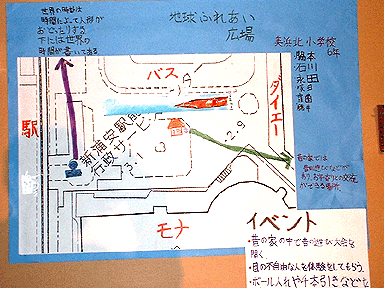 世界の時計は
時間によって人形が
おどったりする
下には世界の
時間が書いてある
地球ふれあい
広場
美浜北小学校
6年
脇本
石川
永田
バス
ダイエー
駅
新浦安駅前
行政サービス
モナ
昔の家では
ができる場所
イベント
・昔の家の中で昔の遊び大会を
開く
・目の不自由な人を体験をしてもらう。
・ボール入れや千本引きなどを